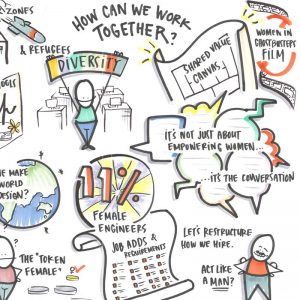 ZONES
& REFUGEES
HOW CAN WE WORK
TOGETHER?
DIVERSITY
SHARED VALUE
CANVAS
WOMEN IN
GHOSTBUSTERS
FILM
IT'S NOT JUST ABOUT
EMPOWERING WOMEN...
...IT'S THE CONVERSATION
MAKE
WORLD
DESIGN?
11%
FEMALE
ENGINEERS
THE "TOKEN
FEMALE"
JOB ADDS &
REQUIREMENTS
LET'S RESTRUCTURE
HOW WE HIRE.
ACT LIKE
A MAN?